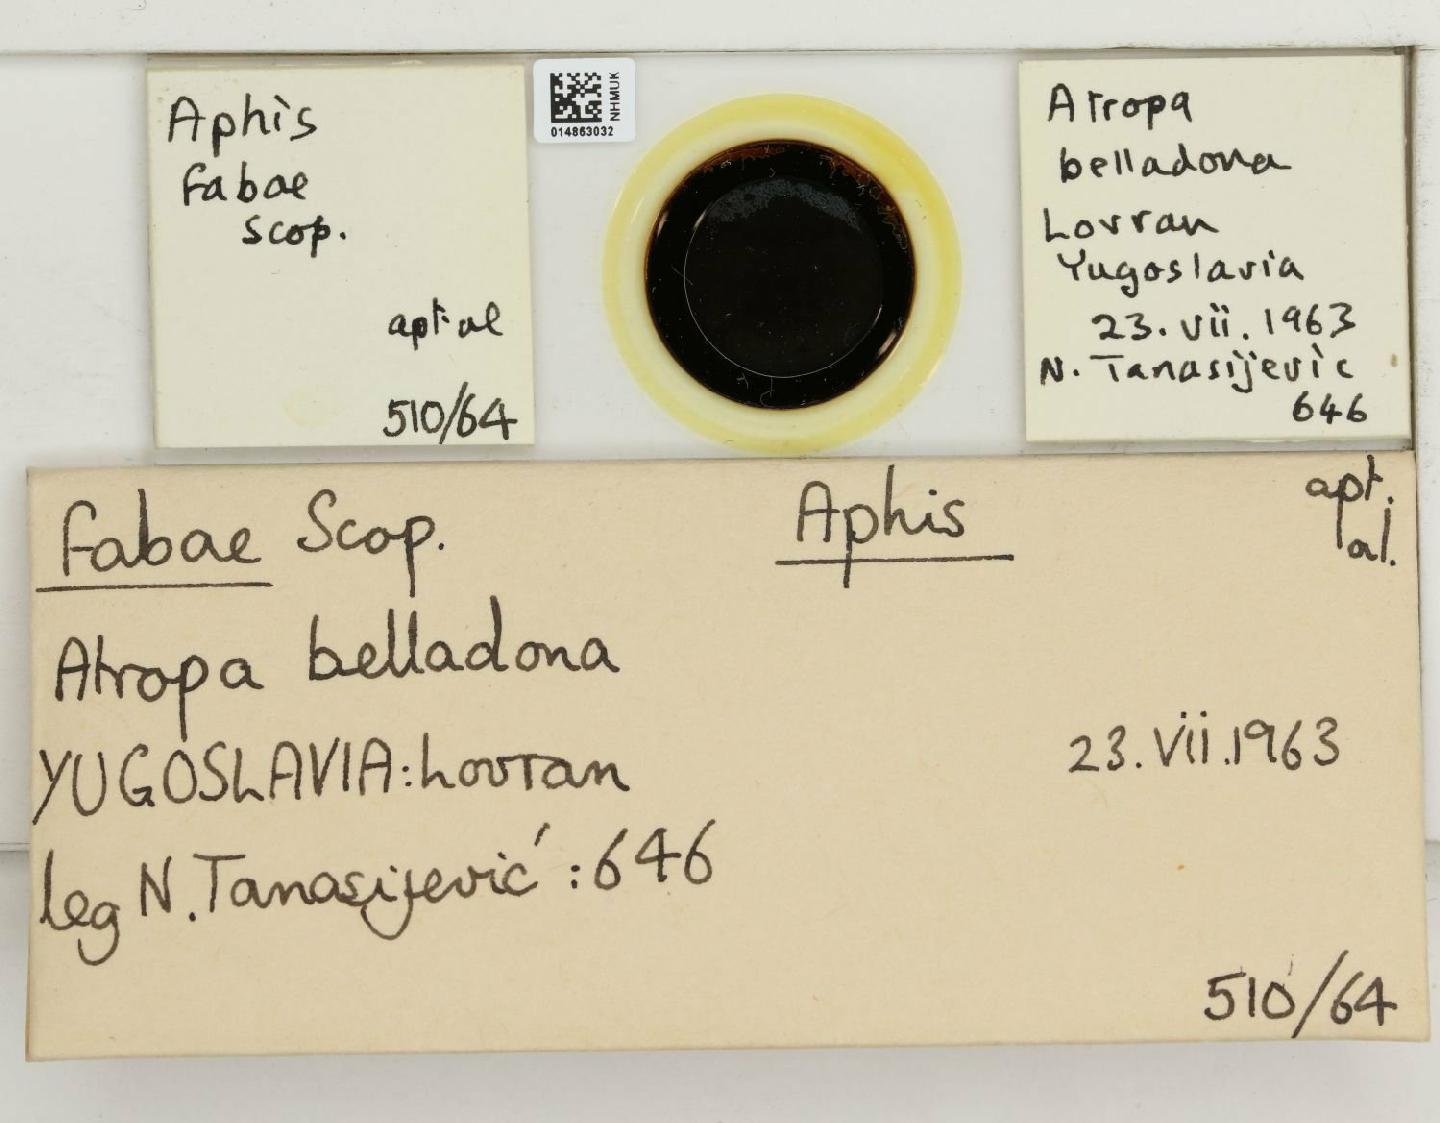 Aphis
fabae
scop.
apt. al
510/64
NHMUK
014863032
Atropa
belladona
Lovran
Yugoslavia
23.vii.1963
N. Tanasijevic
646
fabae Scop.
Aphis
apt.
al.
Atropa belladona
YUGOSLAVIA: Lovran
23.Vii.1963
leg N. Tanasijević: 646
510/64